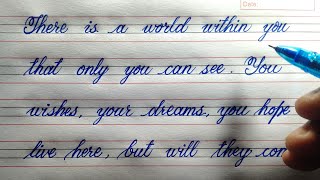 Date:
There is a world within you
that only you can see. You
wishes, your dreams, you hope
live here, but will they com